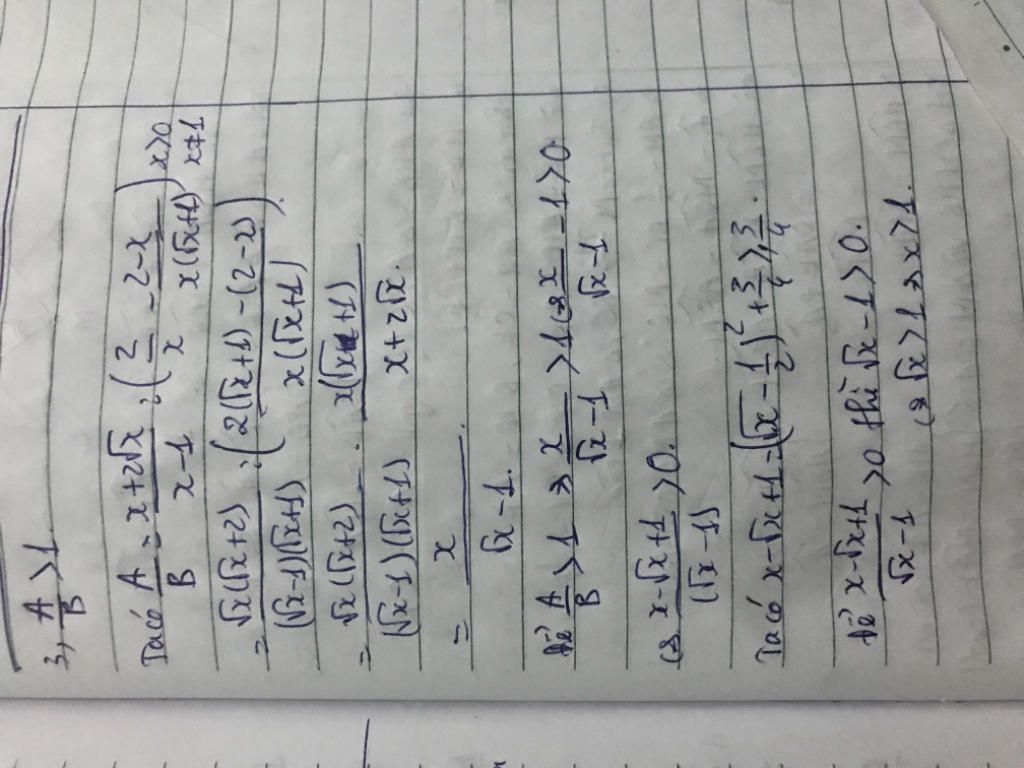 3, A/B > 1
Ta có A/B = (x+2√x)/(x-1) : (2/x - (2-x)/(x(√x+1))) x>0 x≠1
= (√x(√x+2))/((√x-1)(√x+1)) : ((2(√x+1) - (2-2))/(x(√x+1))).
= (√x(√x+2))/((√x-1)(√x+1)) · (x(√x+1))/(x+2√x).
= x/(√x-1).
Để A/B > 1 => x/(√x-1) > 1 (=> x/(√x-1) - 1 > 0.
(=> (x-√x+1)/(√x-1) > 0.
Ta có x-√x+1 = (√x - 1/2)² + 3/4 ⩾ 3/4.
Để (x-√x+1)/(√x-1) > 0 thì √x-1 > 0.
(=> √x > 1 => x > 1.